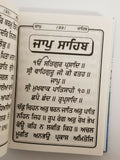 ਜਾਪੁ (੨੨) ਸਾਹਿਬ
ਜਾਪੁ ਸਾਹਿਬ
ੴ ਸਤਿਗੁਰ ਪ੍ਰਸਾਦਿ ॥
ਸ੍ਰੀ ਵਾਹਿਗੁਰੂ ਜੀ ਕੀ ਫਤਹ ॥
ਜਾਪੁ ॥
ਸ੍ਰੀ ਮੁਖਵਾਕ ਪਾਤਿਸਾਹੀ ੧੦ ॥
ਛਪੈ ਛੰਦ ॥ ਤ੍ਵਪ੍ਰਸਾਦਿ ॥
ਚੱਕ੍ਰ ਚਿਹਨ ਅਰੁ ਬਰਨ ਜਾਤਿ ਅਰੁ ਪਾਤਿ
ਨਹਿਨ ਜਿਹ ॥ ਰੂਪ ਰੰਗ ਅਰੁ ਰੇਖ ਭੇਖ
ਕੋਊ ਕਹਿ ਨ ਸਕਤ ਕਿਹ ॥ ਅਚਲ
ਮੂਰਤਿ ਅਨਭਉ ਪ੍ਰਕਾਸ ਅਮਿਤੋਜਿ